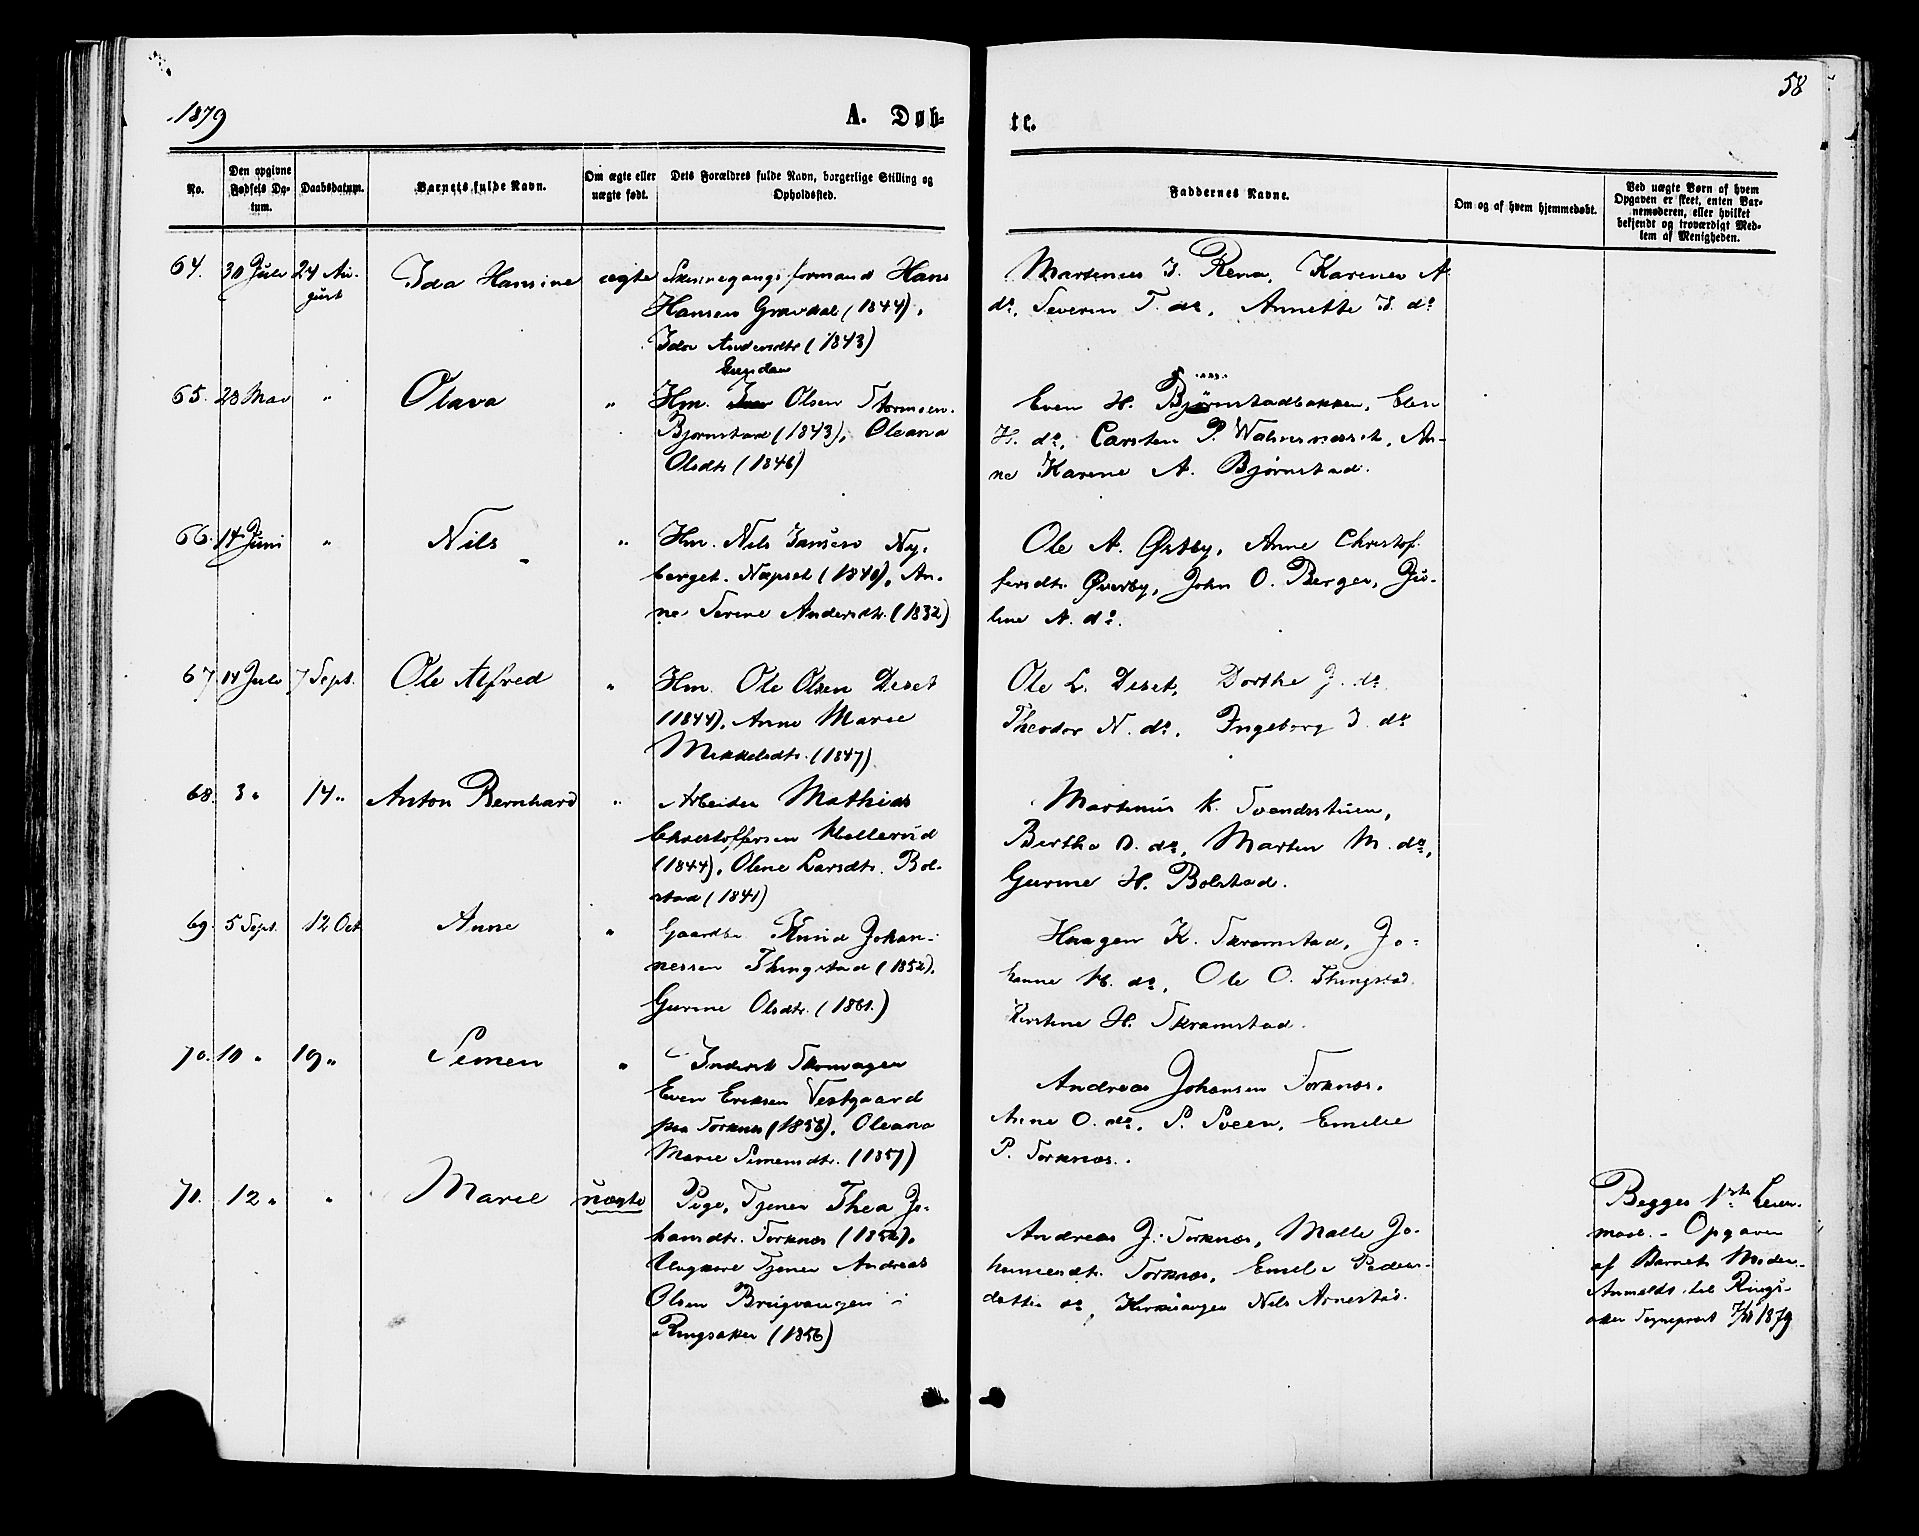 58
1879
A. Døb-
te.
No.
Den opgivne Fødsels Da-tum.
Daabsdatum.
Barnets fulde Navn.
Om ægte eller uægte født.
Dets Forældres fulde Navn, borgerlige Stilling og Opholdssted.
Faddernes Navne.
Om og af hvem hjemmedøbt.
Ved uægte Børn af hvem Opgaven er skeet, enten Bar-nemoderen, eller hvilket bekjendt og troværdigt Med-lem af Menigheden.
64. 30 Juli 24 Au- Ida Hansine ægte Skinnegangsformand Hans
gust Hansen Gravdal (1844),
Ida Andersdtr (1843)
Martinius J. Rena, Karine A.
do, Severin T. do, Annette J. do
65. 23 Mai " Olava " Hm. Olsen Stormoen-
Bjørnstad (1843), Oleana
Olsdtr (1846)
Even H. Bjørnstadbakken, Elen
H. do, Carsten P. An-
ne Karine A. Bjørnstad.
66. 14 Juni " Nils " Hm. Nils Jansen Ny-
berget. Næpset (1840), An-
ne Serine Andersdtr. (1832)
Ole A. Østby, Anne Christof-
fersdtr. Øverby, John O. Berger, Ju-
line A. do.
67. 14 Juli 7 Sept. Ole Alfred " Hm. Ole Olsen Deset
(1844), Anne Marie
Mikkelsdtr. (1847)
Ole L. Deset, Dorthe J. do
Theodor N. do, Ingeborg J. do
68. 3 " 14 " Anton Bernhard " Arbeider Mathias
Christoffersen Hellerud
(1844), Olene Larsdtr. Bol-
stad (1841)
Martinus K. Svendsstuen,
Berthe O. do, Marten M. do,
Gurine H. Bolstad.
69. 5 Sept. 12 Oct Anne " Gaardbr Knud Johan-
nessen Thingstad (1852),
Gurine Olsdtr. (1861)
Haagen K. Skramstad, Jo-
hanne M. do, Ole O. Thingstad.
Kirstine H. Skramstad.
70. 10 " 19 " Simen " Inderst Skomager
Even Eriksen Vestgaard
paa Torknæs (1856), Oleana
Marie Simensdtr. (1857)
Andreas Johansen Torknæs.
Anne O. do, S. Sveen, Emilie
P. Torknæs.
71. 12 " " Marie uægte Pige, Tjener Thea Jo-
hansdtr. Torknæs (1856),
Ungkarl Tjener Andreas
Olsen Brugvangen i
Ringsaker (1856)
Andreas J. Torknæs, Malle Jo-
hannesdtr. Torknæs, Emilie Peders-
datter do, Kirkesanger Nils Arnestad.
Begges 1ste Leier-
maal. - Opgaven
af Barnets Moder.
Anmeldt til Rings-
aker Sogneprest 7/11 1879